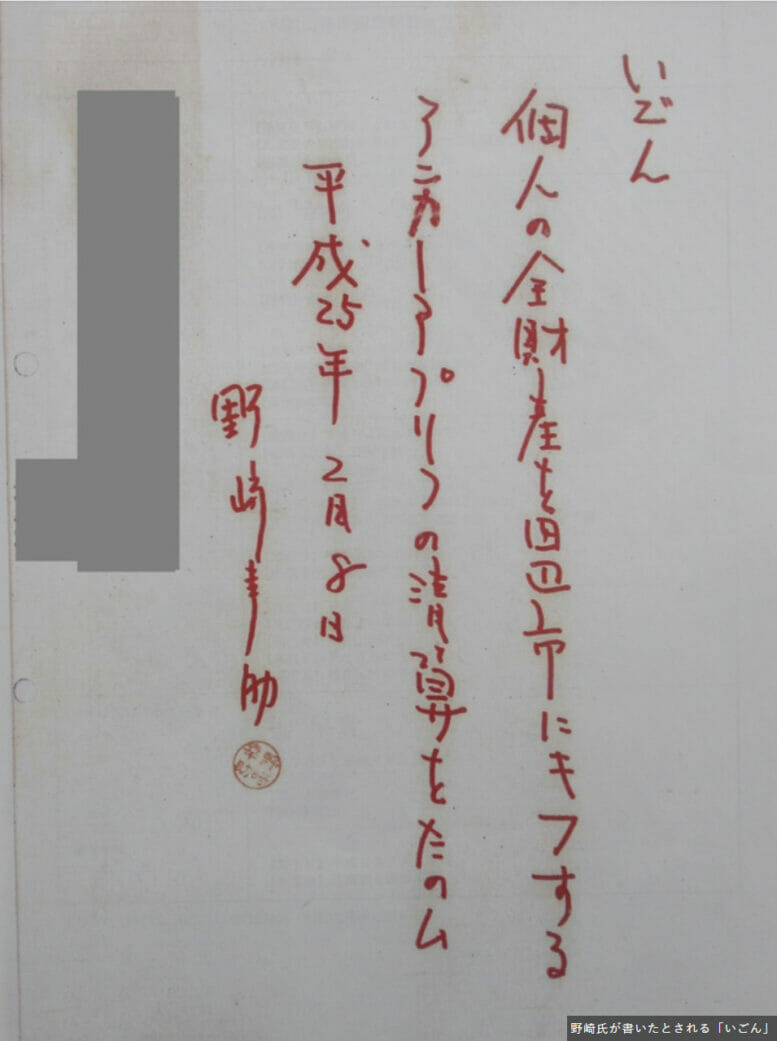 いごん
個人の全財産を田辺市にキフする
アンカーアプリコの清算をたのム
平成25年2月8日
野崎幸助
野崎氏が書いたとされる「いごん」